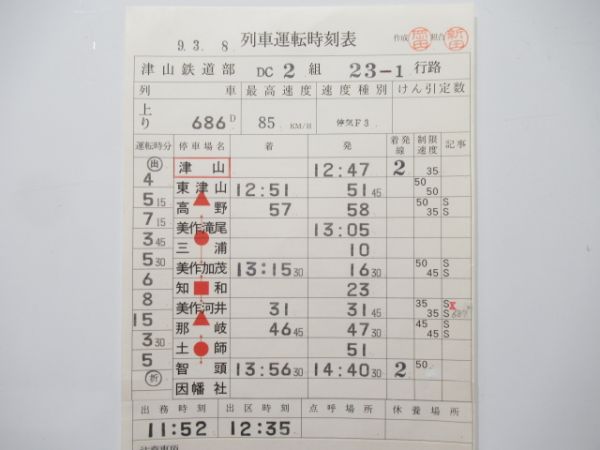 9.3.8 列車運転時刻表 作成 照合
津山鉄道部 DC 2 組 23-1 行路
列 車 最高速度 速度種別 けん引定数
上り 686D 85 KM/H 停気F3
運転時分 停車場名 着 発 着発線 制限速度 記事
出 津山 12:47 2 35
4
東津山 12:51 51 45 50 50
5 15
高野 57 58 50 35 S S
7 15
美作滝尾 13:05
3 45
三浦 10
5 30
美作加茂 13:15 30 16 30 50 45 S S
6
知和 23
8
美作河井 31 31 45 35 35 S S
15
那岐 46 45 47 30 45 45 S S
3 30
土師 51
5
智頭 13:56 30 14:40 30 2 50
折 因幡社
出務時刻 出区時刻 点呼場所 休養場所
11:52 12:35
注意事項